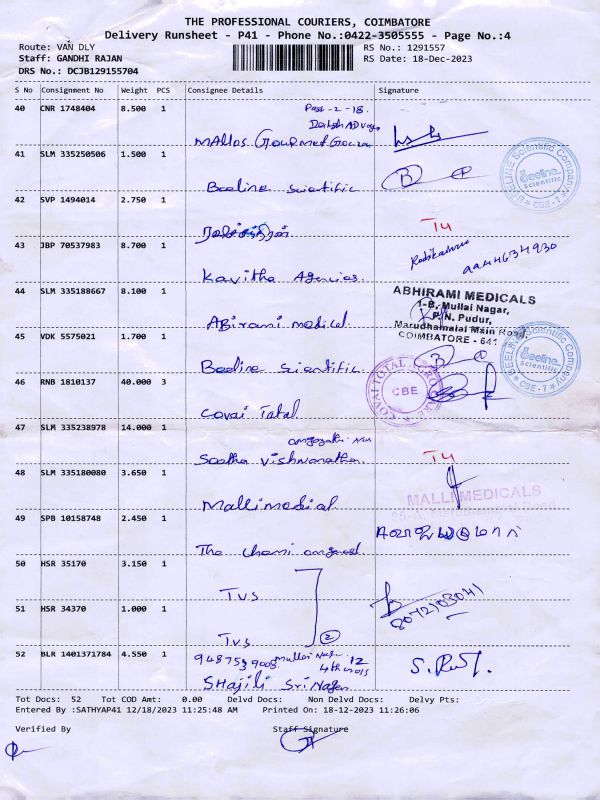 THE PROFESSIONAL COURIERS, COIMBATORE
Delivery Runsheet - P41 - Phone No.:0422-3505555 - Page No.:4
Route: VAN DLY
RS No.: 1291557
Staff: GANDHI RAJAN
RS Date: 18-Dec-2023
DRS No.: DCJB129155704
S No Consignment No Weight PCS Consignee Details Signature
40 CNR 1748404 8.500 1
41 SLM 335250506 1.500 1
Beeline scientific
BEELINE Scientific Company
Beeline
Scientific
CBE-7
42 SVP 1494014 2.750 1
43 JBP 70537983 8.700 1
Kavitha Agencies.
44 SLM 335188667 8.100 1
Abirami medical.
ABHIRAMI MEDICALS
1-B, Mullai Nagar,
P.N. Pudur,
Marudhamalai Main Road,
COIMBATORE - 641
45 VDK 5575021 1.700 1
Beeline scientific.
BEELINE Scientific Company
Beeline
Scientific
CBE-7
46 RNB 1810137 40.000 3
Covai Total
COVAI TOTAL
CBE
47 SLM 335238978 14.000 1
48 SLM 335180080 3.650 1
Mallimedical
MALLI MEDICALS
49 SPB 10158748 2.450 1
The
50 HSR 35170 3.150 1
TVS
51 HSR 34370 1.000 1
TVS
2
8072103041
52 BLR 1401371784 4.550 1
Tot Docs: 52 Tot COD Amt: 0.00 Delvd Docs: Non Delvd Docs: Delvy Pts:
Entered By :SATHYAP41 12/18/2023 11:25:48 AM Printed On: 18-12-2023 11:26:06
Verified By Staff Signature